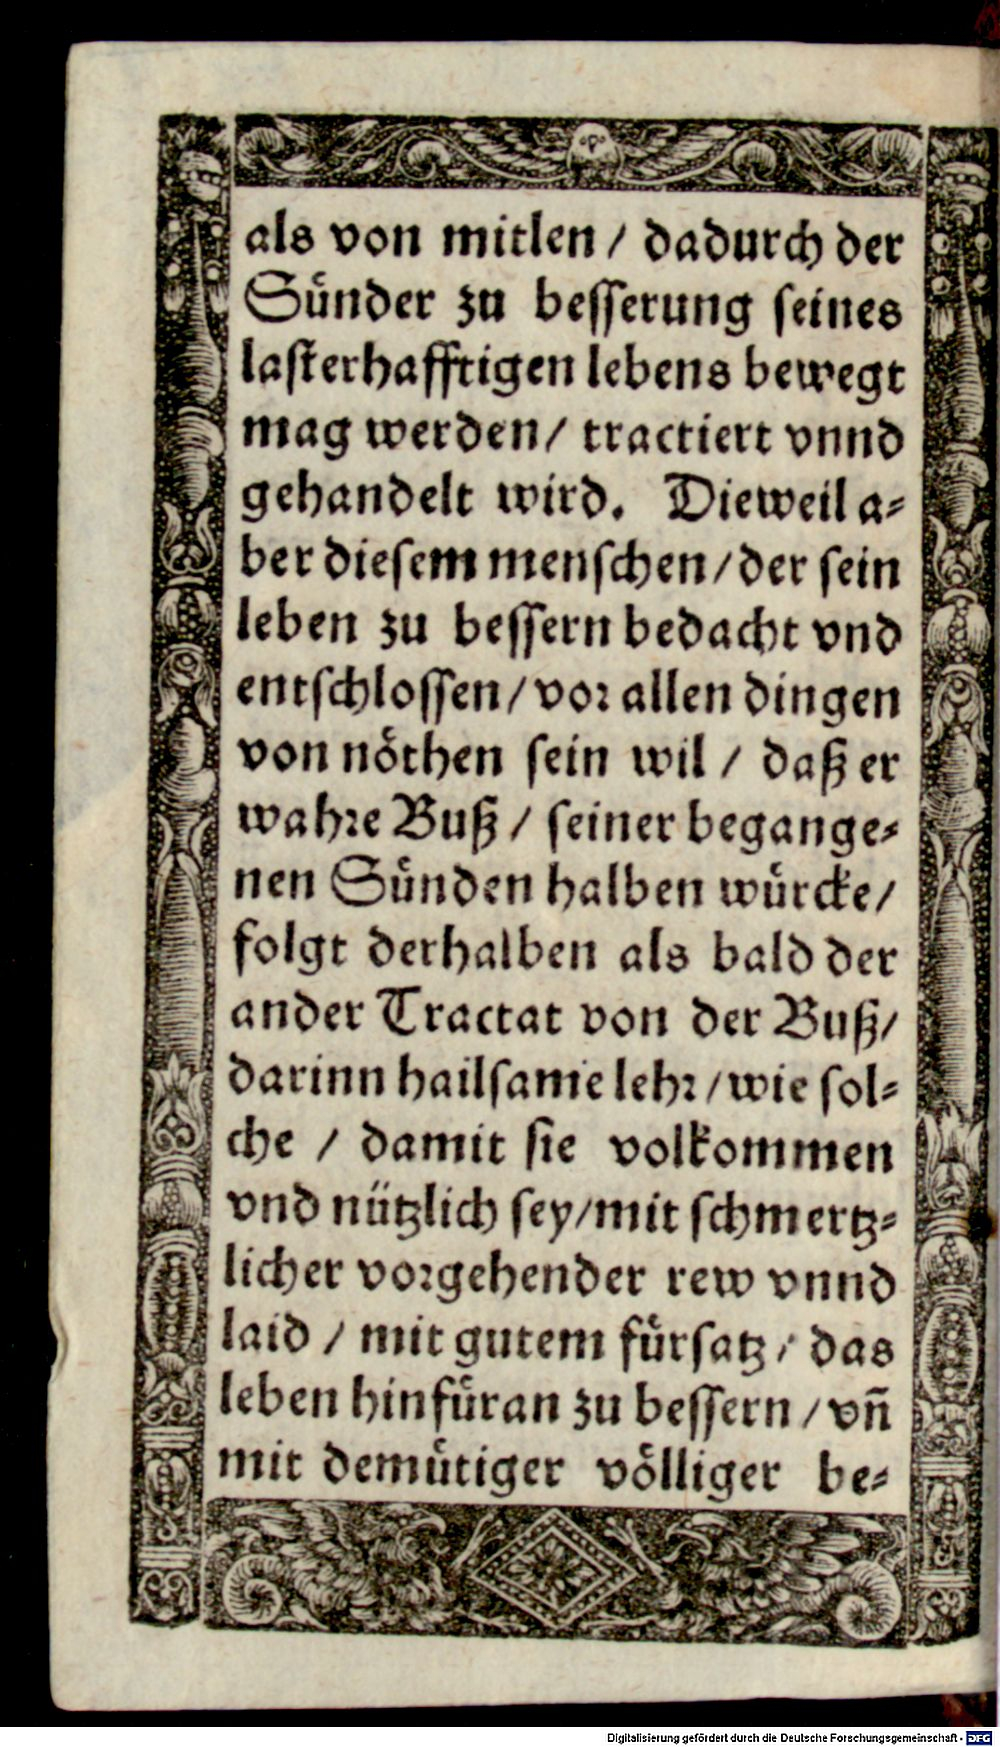 als von mitlen / dadurch der
Sünder zu besserung seines
lasterhafftigen lebens bewegt
mag werden / tractiert vnnd
gehandelt wird. Dieweil a⸗
ber diesem menschen / der sein
leben zu bessern bedacht vnd
entschlossen / vor allen dingen
von nöthen sein wil / daß er
wahre Buß / seiner begange⸗
nen Sünden halben würcke /
folgt derhalben als bald der
ander Tractat von der Buß /
darinn hailsame lehr / wie sol⸗
che / damit sie volkommen
vnd nützlich sey / mit schmertz⸗
licher vorgehender rew vnnd
laid / mit gutem fürsatz / das
leben hinfüran zu bessern / vñ
mit demütiger völliger be⸗
Digitalisierung gefördert durch die Deutsche Forschungsgemeinschaft - DFG